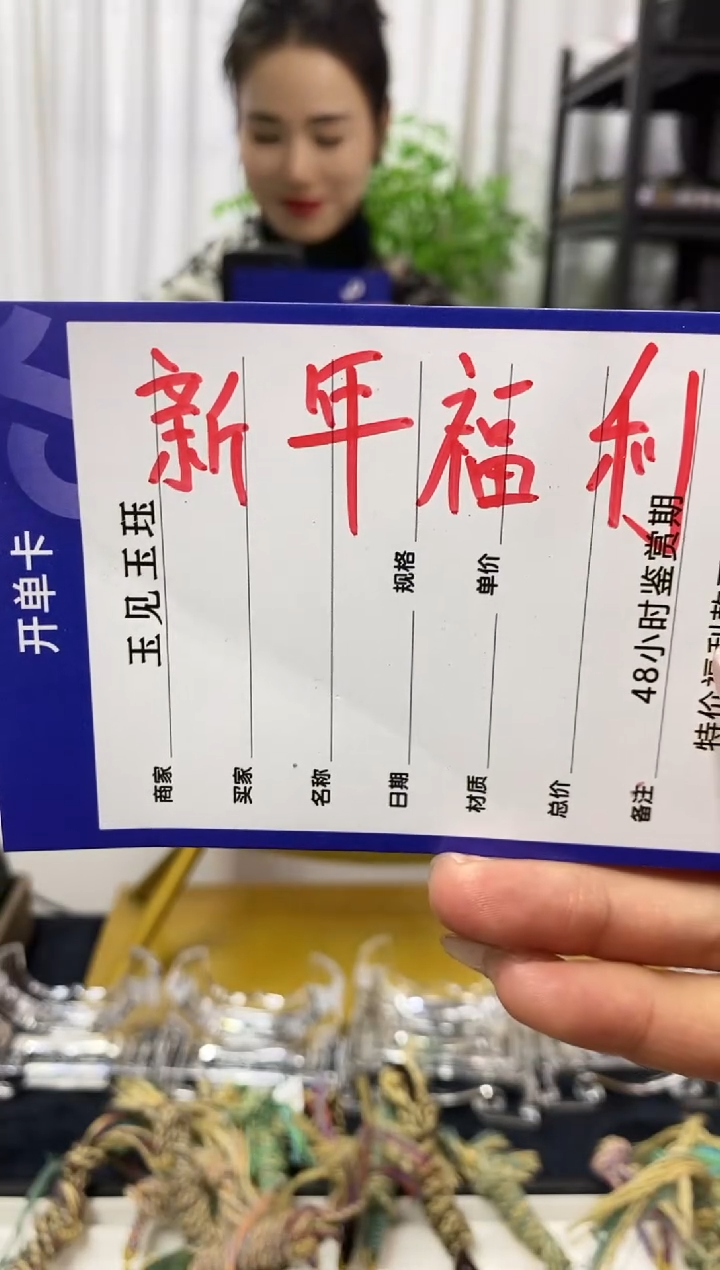 新年福利
开单卡
商家 玉见玉珏
买家
名称
日期 规格
材质 单价
总价
备注 48小时鉴赏期
特价福利